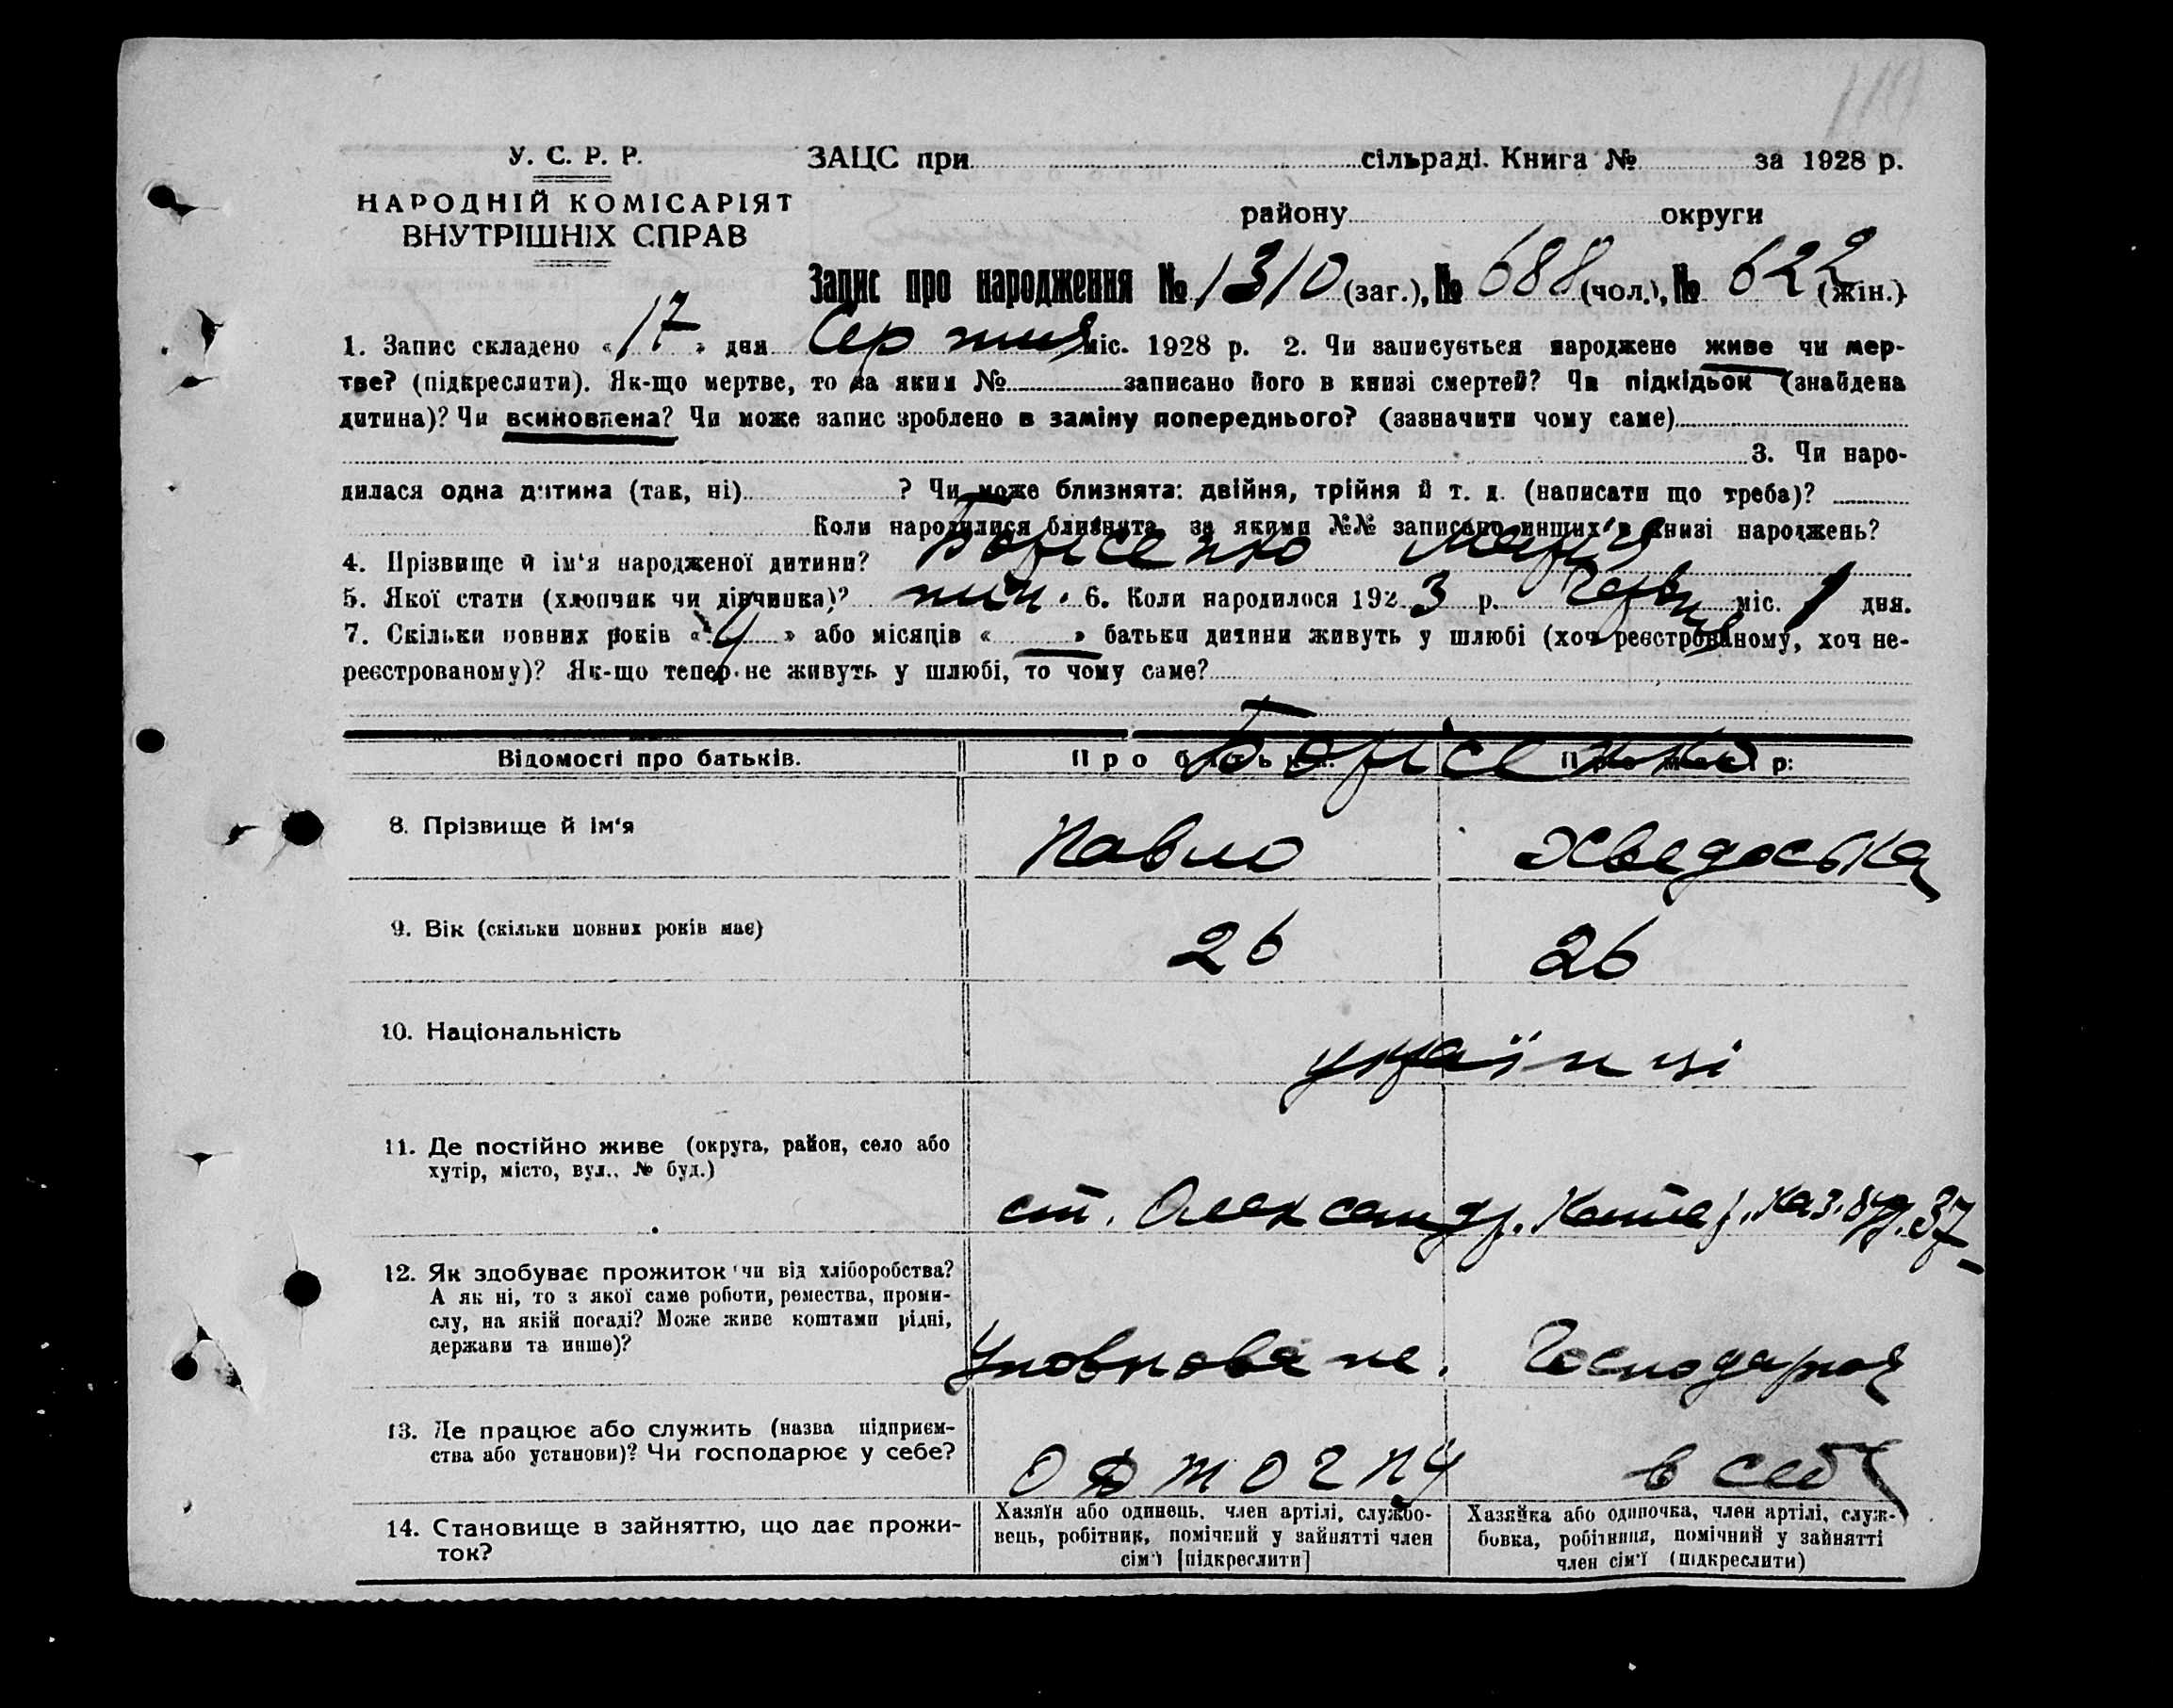 110
У. С. Р. Р.
НАРОДНІЙ КОМІСАРІЯТ
ВНУТРІШНІХ СПРАВ
ЗАЦС при сільраді. Книга № за 1928 р.
району округи
Запис про народження № 1310 (заг.), № 688 (чол.), № 622 (жін.)
1. Запис складено « 17 » дня Серпня міс. 1928 р. 2. Чи записується народжене живе чи мер-
тве? (підкреслити). Як-що мертве, то за яким № записано його в книзі смертей? Чи підкідьок (знайдена
дитина)? Чи всиновлена? Чи може запис зроблено в заміну попереднього? (зазначити чому саме)
3. Чи наро-
дилася одна дитина (так, ні) ? Чи може близнята: двійня, трійня й т. д. (написати що треба)?
Коли народилися близнята, за якими №№ записано инших в книзі народжень?
4. Прізвище й ім'я народженої дитини? Борісенко Марія
5. Якої статі (хлопчик чи дівчинка)? 6. Коли народилося 1923 р. Червня міс. 1 дня.
7. Скільки повних років « » або місяців « » батьки дитини живуть у шлюбі (хоч реєстрованому, хоч не-
реєстрованому)? Як-що тепер не живуть у шлюбі, то чому саме?
Відомості про батьків. Про батька: Про матір:
Борісенко
8. Прізвище й ім'я Павло Хведоська
9. Вік (скільки повних років має) 26 26
10. Національність українці
11. Де постійно живе (округа, район, село або
хутір, місто, вул., № буд.)
ст. Олександр. Каз. буд. 37
12. Як здобуває прожиток чи від хліборобства?
А як ні, то з якої саме роботи, ремества, проми-
слу, на якій посаді? Може живе коштами рідні,
держави та инше)?
Уповноваже. Господарює
13. Де працює або служить (назва підприєм-
ства або установи)? Чи господарює у себе?
в себе
14. Становище в зайняттю, що дає прожи-
ток?
Хазяїн або одинець, член артілі, службо-
вець, робітник, помічний у зайнятті член
сім'ї [підкреслити]
Хазяйка або одиночка, член артілі, служ-
бовка, робітниця, помічний у зайнятті
член сім'ї (підкреслити)